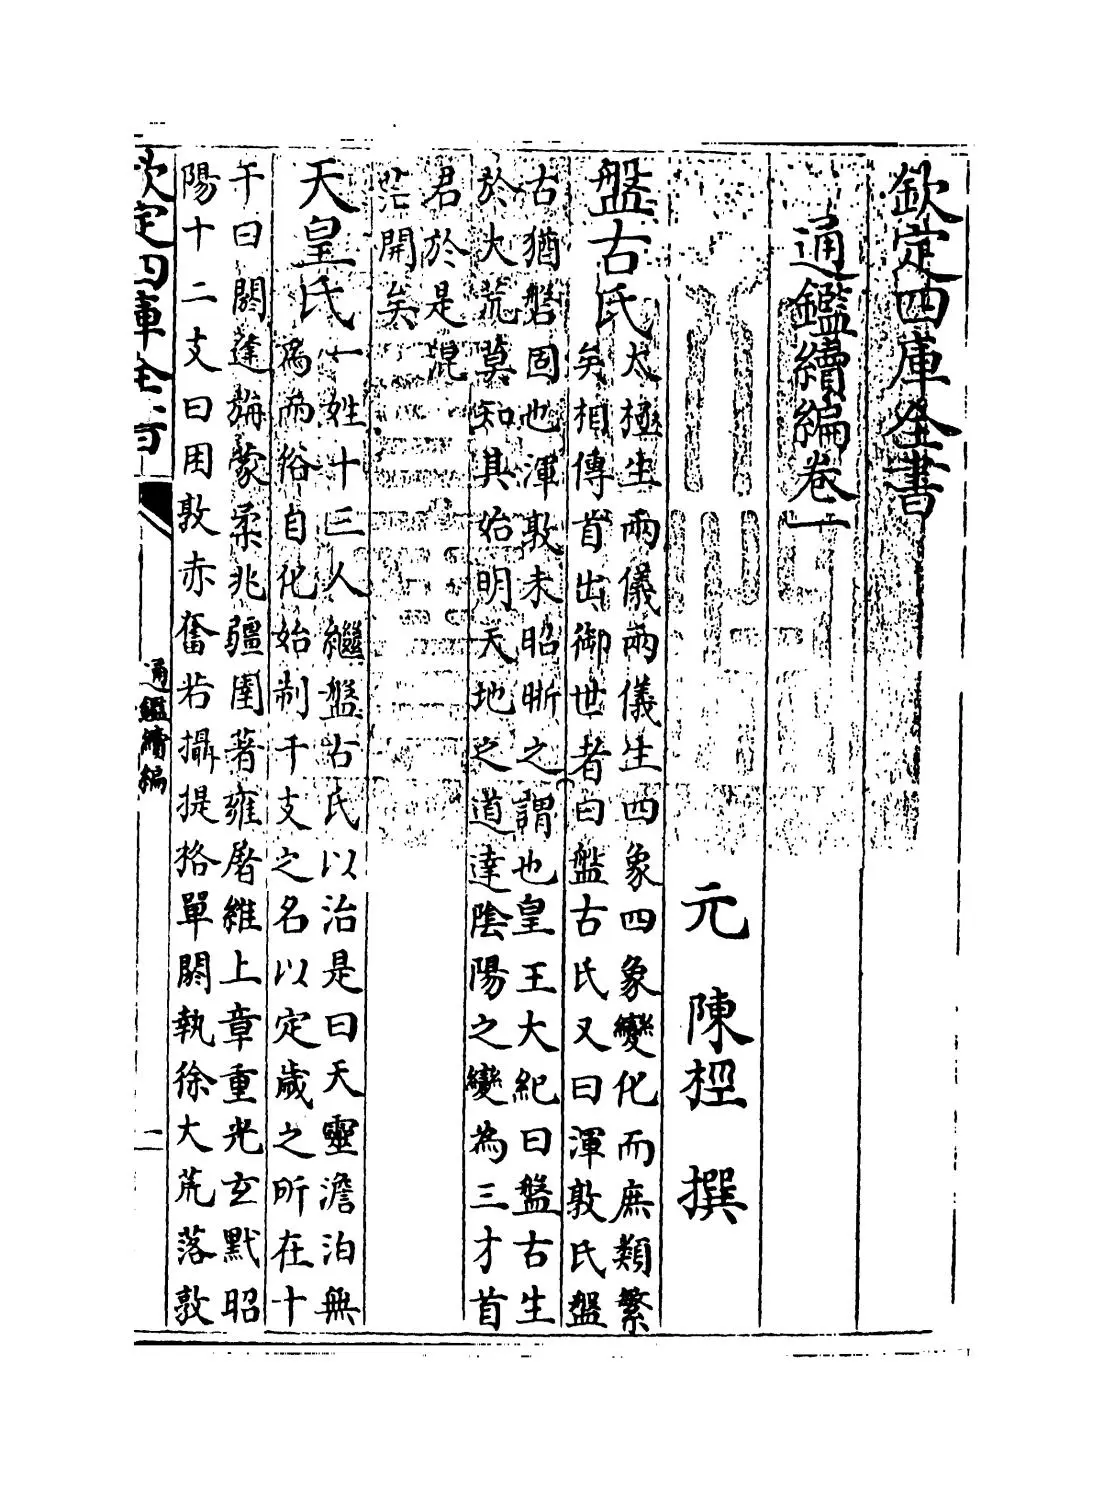 欽定四庫全書
通鑑續編卷一
元 陳桱 撰
盤古氏太極生兩儀兩儀生四象四象變化而庶類繁
矣相傳首出御世者曰盤古氏又曰渾敦氏盤
古猶磐固也渾敦未昭晰之謂也皇王大紀曰盤古生
於大荒莫知其始明天地之道達陰陽之變為三才首
君於是混
茫開矣
天皇氏一姓十三人繼盤古氏以治是曰天靈澹泊無
為而俗自化始制干支之名以定歲之所在十
干曰閼逢旃蒙柔兆疆圉著雍屠維上章重光玄黓昭
陽十二支曰困敦赤奮若攝提格單閼執徐大荒落敦
欽定四庫全書
通鑑續編
一